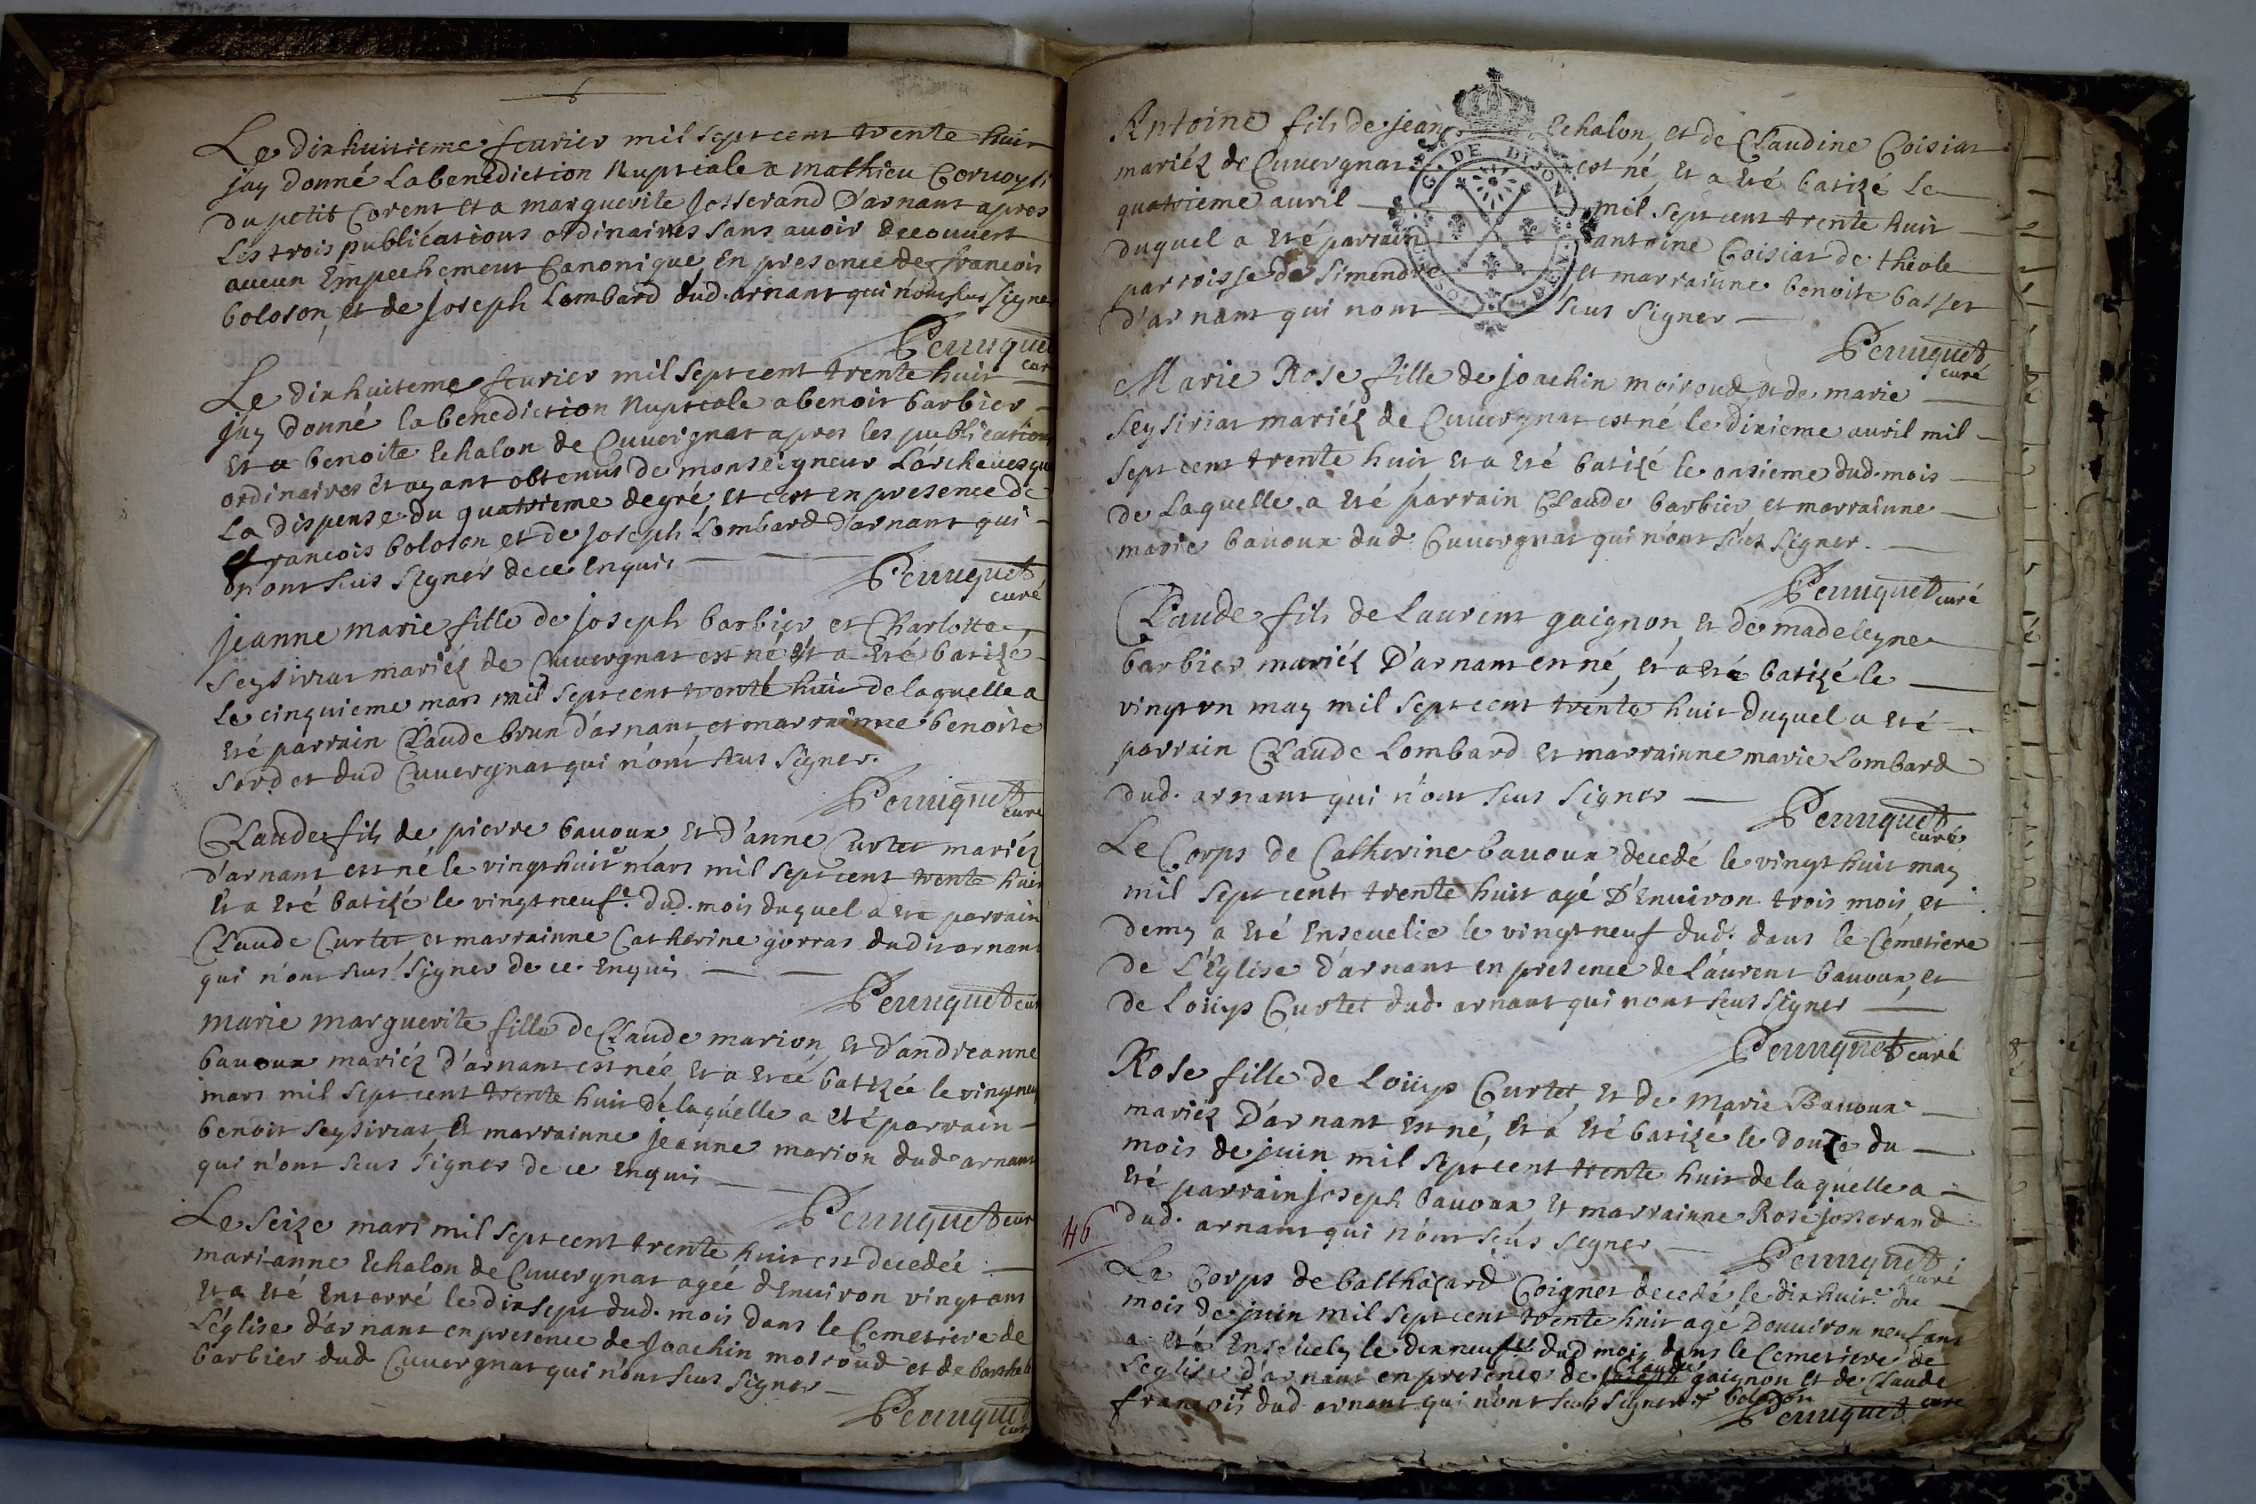 6
Le dixhuitieme feurier mil sept cent trente huit
jay donné La benediction Nuptiale a mathieu
du petit Corent et a marguerite Josserand D'arnant apres
Les trois publications ordinaires sans auoir decouuert
aucun Empechement Canonique, En presence de francois
boloson, et de joseph Lombard dud. arnant qui n'ont sus signer
Perruquet
cur
Le dixhuiteme feurier mil sept cent trente huit
jay donné la benediction Nuptiale a benoit barbier
Et a benoite Echalon de Cuuergnat apres les publications
ordinaires et ayant obtenus de monseigneur L'archeuesque
La dispense du quatrieme degré, et c'est en presence de
francois boloson et de joseph Lombard d'arnant qui
n'ont sus signer de ce Enquis
Perruquet
curé
jeanne marie fille de joseph barbier et Charlotte
Seysiriat mariéz de Cuuergnat est né et a eté batizé
Le cinquieme mars mil sept cent trente huit de laquelle a
eté parrain Claude brun d'arnant, et marrainne benoite
Sordet dud Cuuergnat qui n'ont sus signer.
Perruquet
curé
Claude fils de pierre bauoux et D'anne Curtet mariéz
d'arnant est né le vingthuit mars mil sept cent trente huit
Et a eté batizé le vingtneuf.e dud. mois duquel a eté parrain
Claude Curtet et marrainne Catherine gorras dudit arnant
qui n'ont sus signer de ce Enquis
Perruquet cur
marie marguerite fille de Claude marion, et d'andreanne
bauoux mariéz d'arnant est née, et a eté batizée le vingtneuf
mars mil sept cent trente huit de laquelle a eté parrain
benoit Seysiriat, Et marrainne jeanne marion dud arnant
qui n'ont sus signer de ce Enquis
Perruquet cur
Le Seize mars mil sept cent trente huit est decedée
marianne Echalon de Cuuergnat ageé d'Enuiron vingt ans
et a eté Enterré le dixsept dud. mois dans le Cemetiere de
L'église d'arnant en presence de Joachin moiroud et de
barbier dud Cuuergnat qui n'ont sus signer
Perruquet
cur
Antoine fils de jean Echalon, et de Claudine Coisiat
mariéz de Cuuergnat est né, et a eté batizé le
quatrieme auril mil sept cent trente huit
duquel a eté parrain antoine Coisiat de théole
parroisse de Simendre et marrainne benoite basset
d'arnant qui n'ont sus signer
G. DE DIJON
Perruquet
curé
Marie Rose fille de joachin moiroud, et de marie
Seysiriat mariéz de Cuuergnat est né le dixieme auril mil
sept cent trente huit et a eté batizé le onsieme dud. mois
de Laquelle a eté parrain Claude barbier et marrainne
marie bauoux dud. Cuuergnat qui n'ont sus signer.
Perruquet curé
Claude fils de Laurent gaignon, et de madeleyne
barbier mariéz D'arnant est né, et a eté batizé le
vingt un may mil sept cent trente huit duquel a eté
parrain Claude Lombard et marrainne marie Lombard
dud. arnant qui n'ont sus signer
Perruquet
curé
Le Corps de Catherine bauoux decedé le vingt huit may
mil sept cent trente huit agé D'Enuiron trois mois, et
demy a eté Enseuelie le vingtneuf dud. dans le Cémetiere
de L'Eglise d'arnant en presence de Laurent bauoux, et
de Loüys Curtet dud. arnant qui n'ont sus signer
Perruquet curé
Rose fille de Loüys Curtet, et de Marie Bauoux
mariéz D'arnant est né, Et a eté batizé le douze du
mois de juin mil sept cent trente huit de laquelle a
eté parrain joseph bauoux, Et marrainne Rose josserand
dud. arnant qui n'ont sus signer
46
Perruquet
curé
Le Corps de balthazard Coignet decedé le dixhuit.e du
mois de juin mil sept cent trente huit agé D'enuiron neuf ans
a eté Enseuely le dixneuf.e dud mois dans le Cemetiere de
L'eglise d'arnant en presence de Claude gaignon et de Claude
francois dud arnant qui n'ont sus signer boloson
Perruquet curé